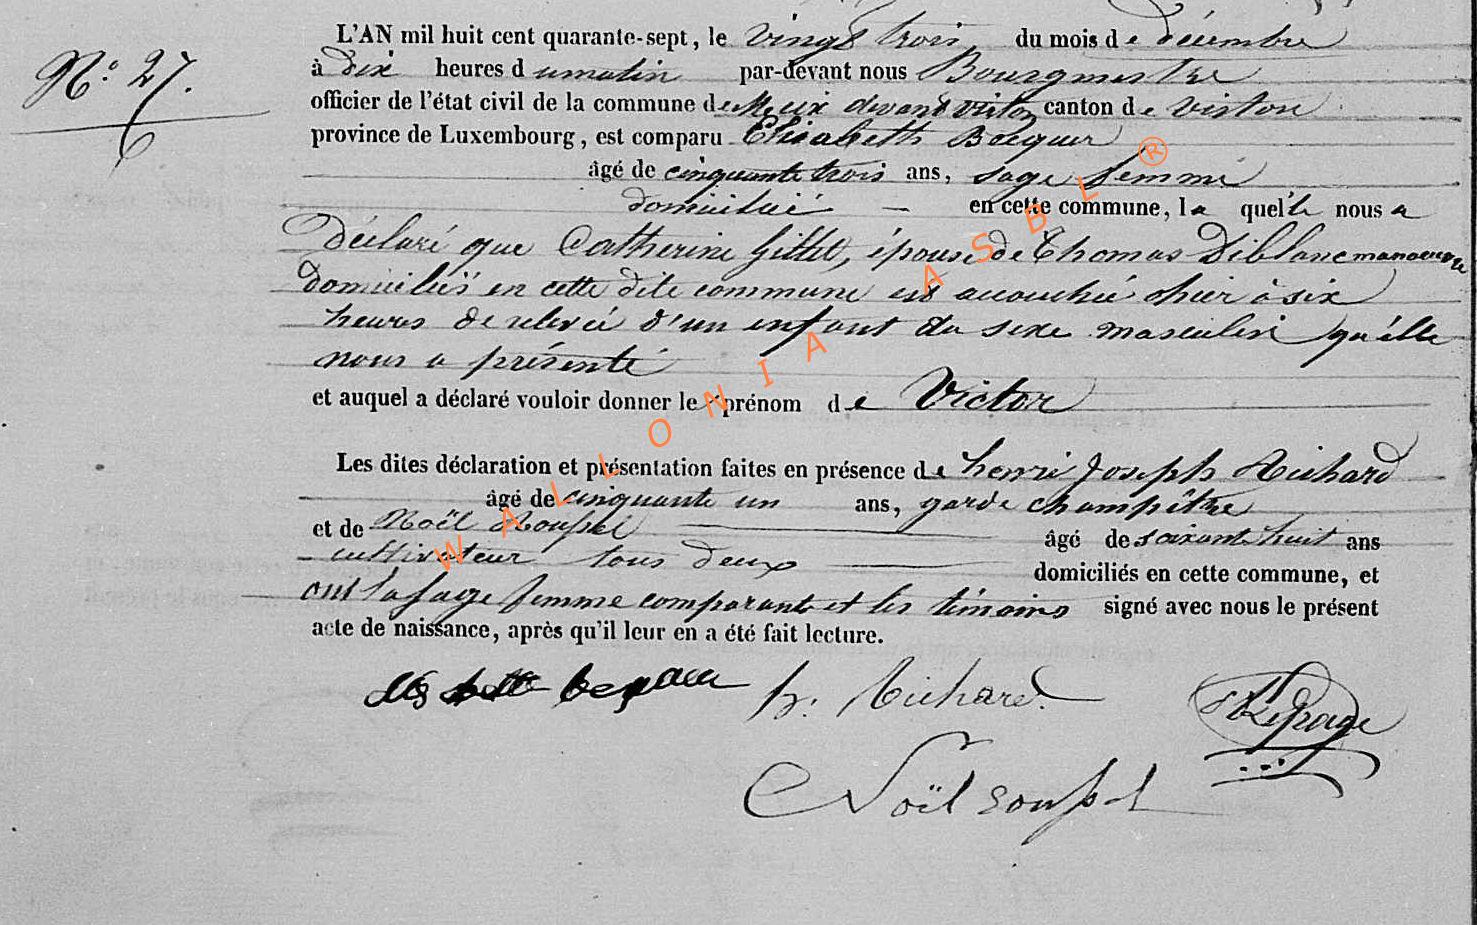 L'AN mil huit cent quarante-sept, le vingt trois du mois de décembre
N.º 27.
à dix heures du matin par-devant nous Bourgmestre
officier de l'état civil de la commune de Meix devant virton canton de virton
province de Luxembourg, est comparu Elisabeth Becquer
âgé de cinquante trois ans, sage femme
domiciliée en cette commune, la quelle nous a
Déclaré que Catherine Gillet, épouse de Thomas Diblanc manoeuvre
domiciliés en cette dite commune est accouchée hier à six
heures de relevée d'un enfant du sexe masculin qu'elle
nous a présenté
et auquel a déclaré vouloir donner le prénom de Victor
Les dites déclaration et présentation faites en présence de henri Joseph Richard
âgé de cinquante un ans, garde champêtre
et de Noël Roussel âgé de soixante huit ans
cultivateur tous deux domiciliés en cette commune, et
ont la sage femme comparante et les témoins signé avec nous le présent
acte de naissance, après qu'il leur en a été fait lecture.
h. Richard.
Lepage
Noël
WALLONIA ASBL ®